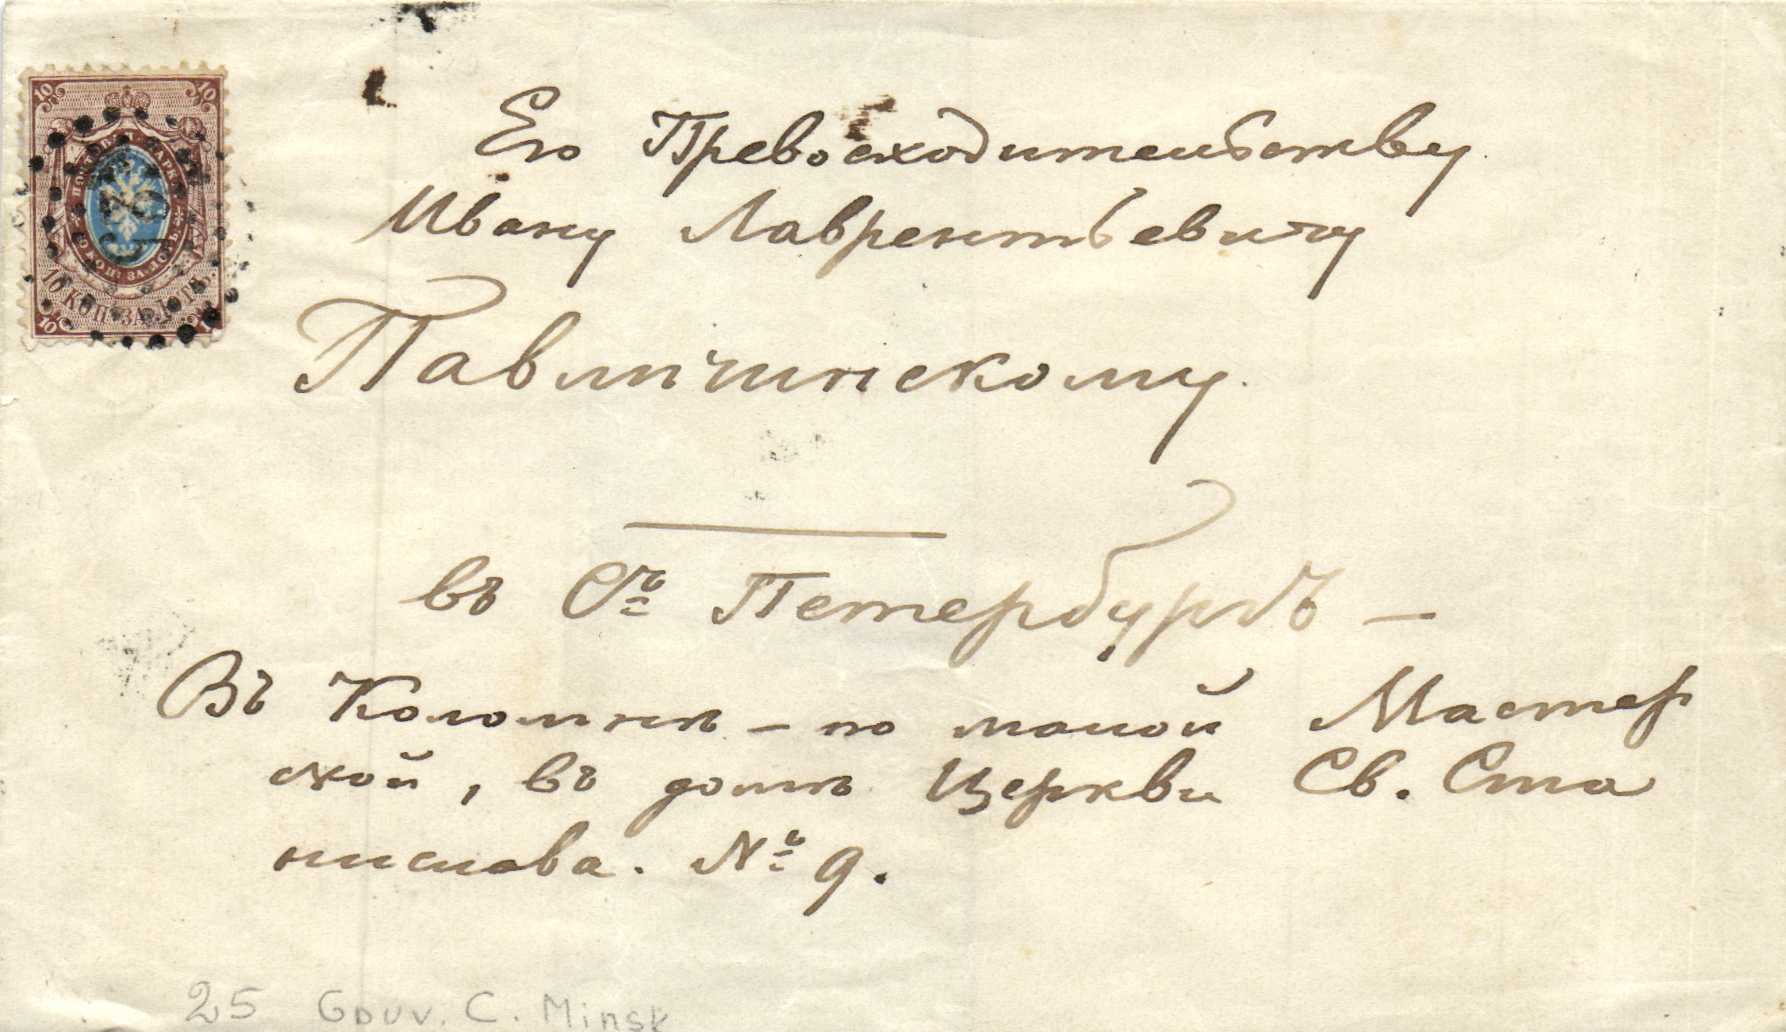 10 10
ПОЧТОВАЯ МАРКА
10 КОП. ЗА ЛОТЪ
10 КОП. ЗА ЛОТЪ.
10 10
25
Его Превосходительству
Ивану Лаврентьевичу
Павличинскому.
въ Съ Петербургъ —
Въ Коломнѣ — по малой Мастер
ской, въ домѣ Церкви Св. Ста
нислава. № 9.
25 Gouv. C. Minsk